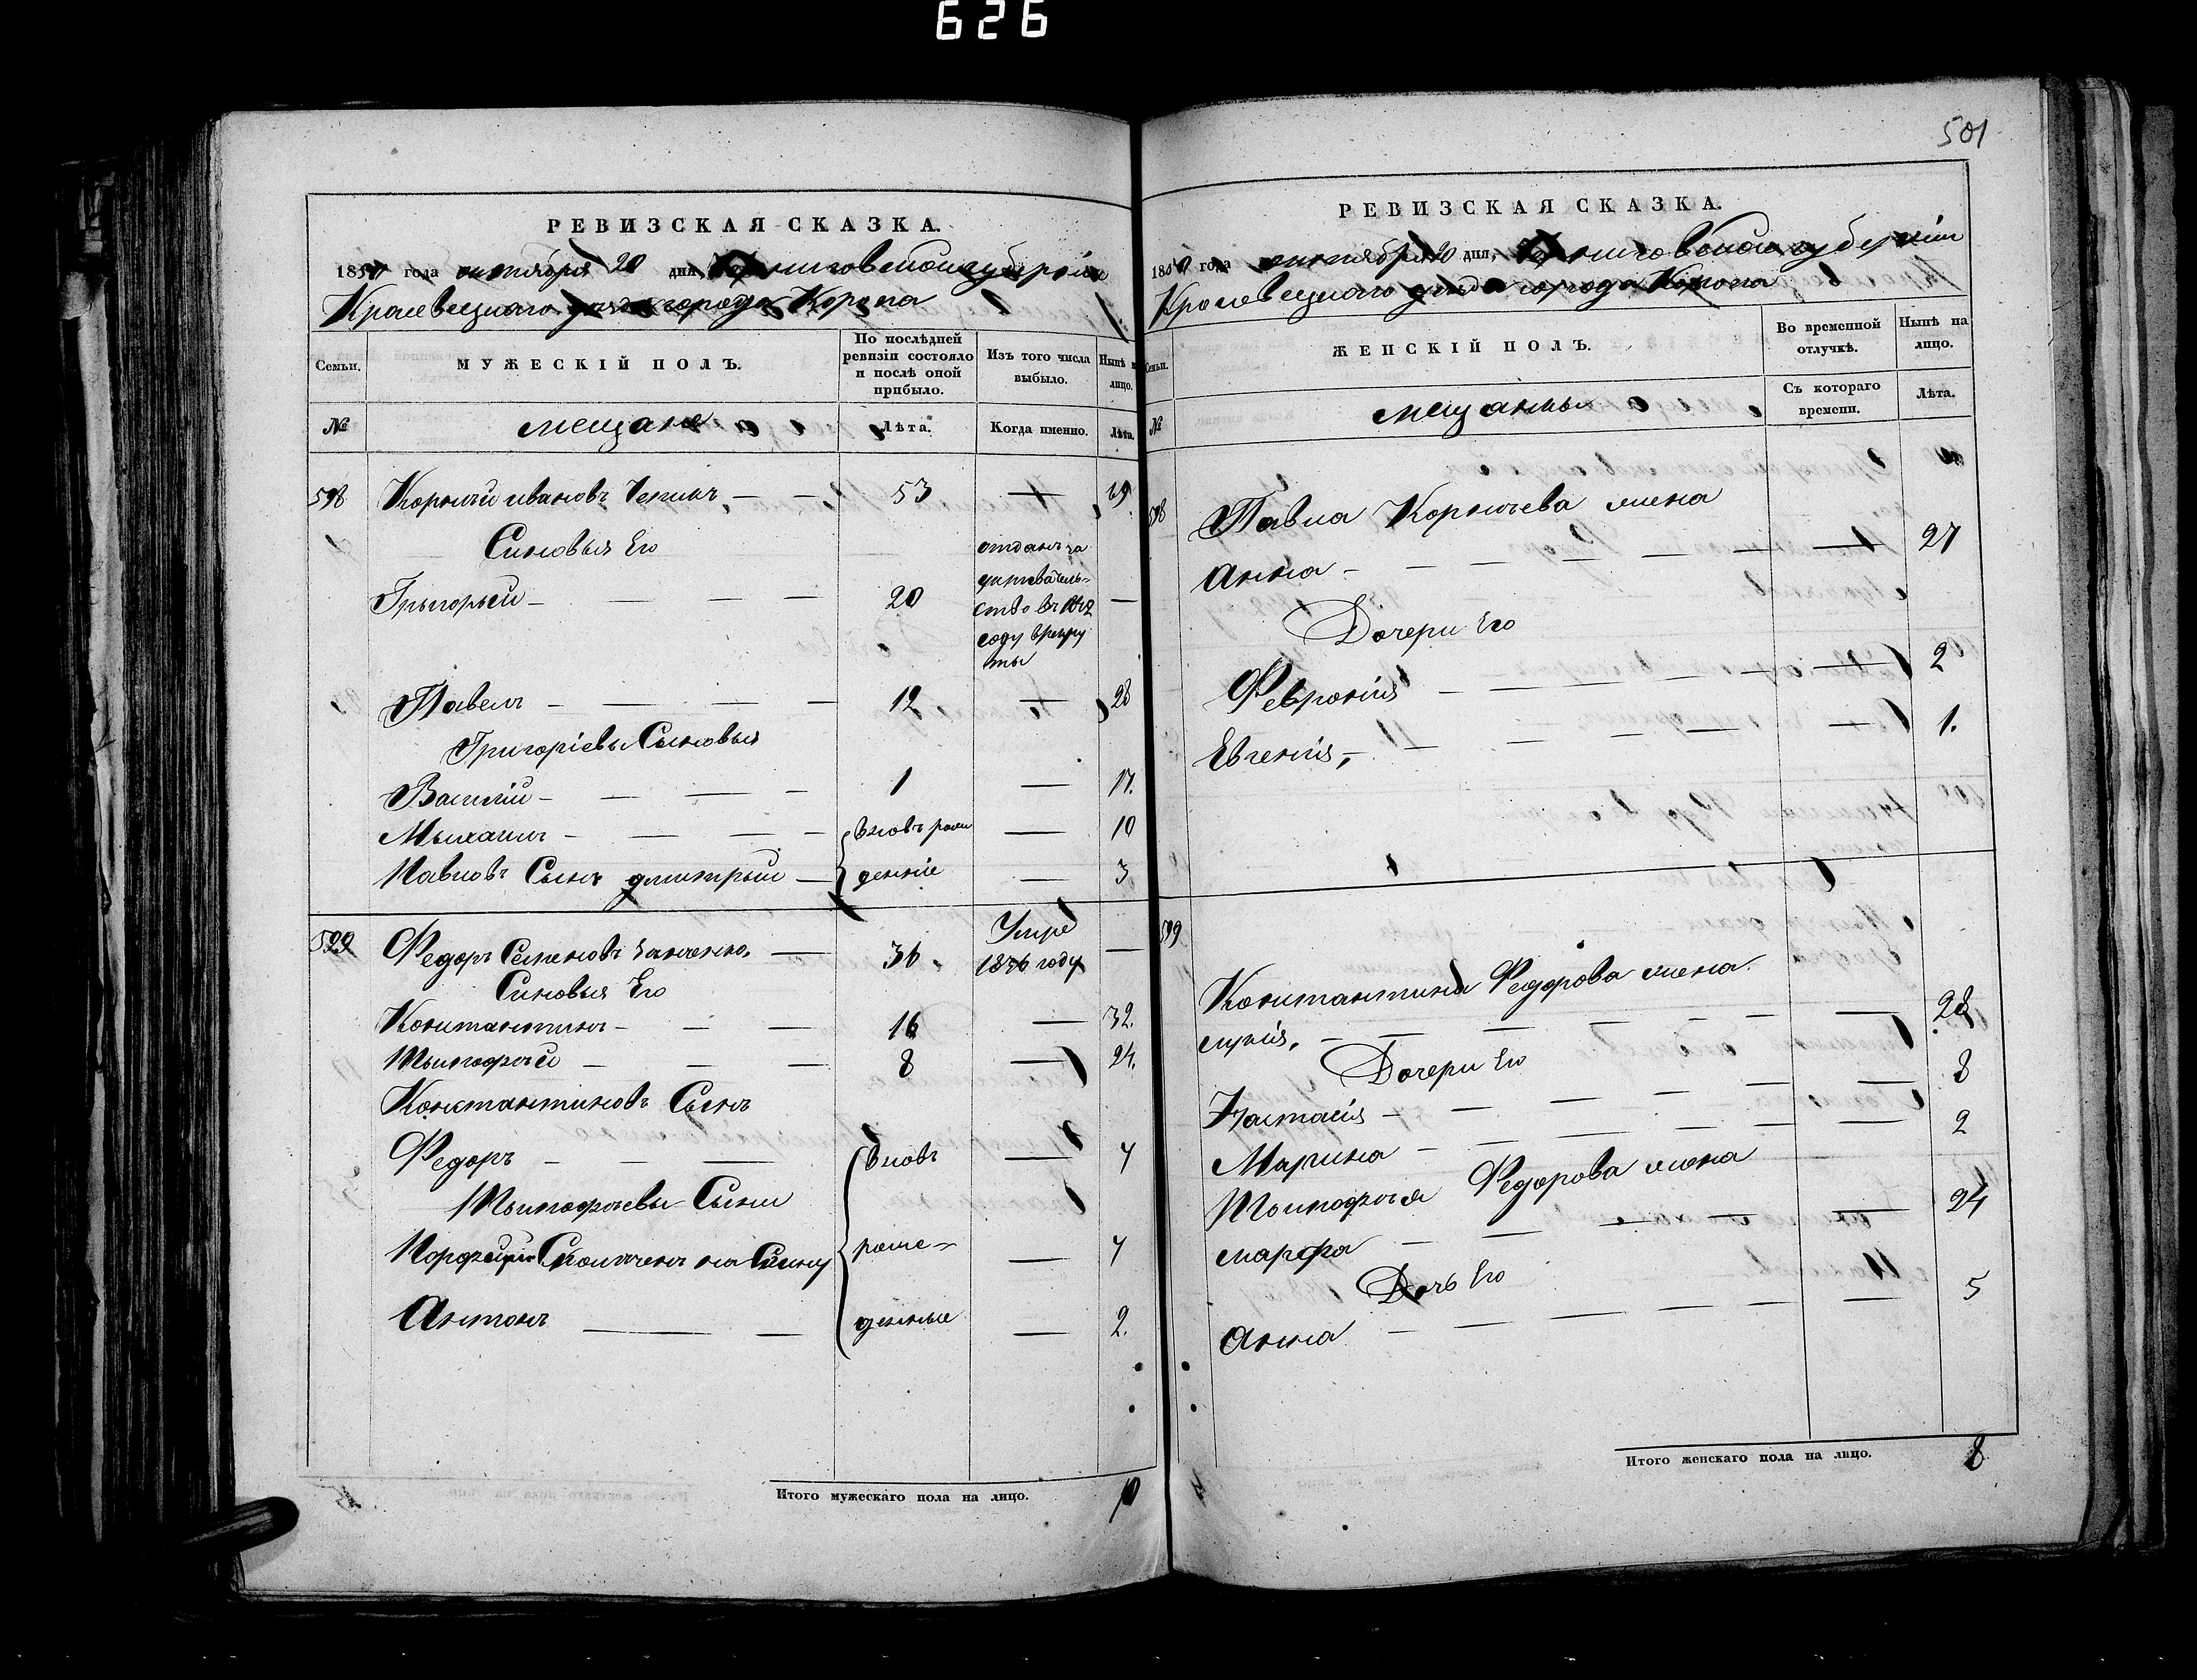 626
501
РЕВИЗСКАЯ СКАЗКА.
1850 года октября 20 дня, Черниговской губерніи
Кролевецкаго уезда города Коропа
Семьи. МУЖЕСКІЙ ПОЛЪ. По послѣдней ревизіи состояло и послѣ оной прибыло. Изъ того числа выбыло. Нынѣ на лицо.
№ мещане Лѣта. Когда именно. Лѣта.
598 Корнѣй ивановъ 53 — 69
Синовья Его
Грыгорый — 20 отданъ за ство въ году
Павелъ — 12 — 28
Григоріевы Сыновья
Василій — 1 — 17.
Мыхаилъ — вновь рож — 10
Павловъ Сынъ дмитрый — денніе — 3
599 Федоръ Семеновъ — 36 Умре 1836 году —
Синовья Его
Константинъ — 16 — 32.
Тымофѣй — 8 — 24.
Константиновъ Сынъ
Федоръ — вновь — 4
Тымофѣевы Сыни
рожде- — 4
Антонъ — денные — 2.
Итого мужескаго пола на лицо. 10
РЕВИЗСКАЯ СКАЗКА.
1850 года октября 20 дня, Черниговской губерніи
Кролевецкаго уезда города Коропа
Семьи. ЖЕНСКІЙ ПОЛЪ. Во временной отлучкѣ. Нынѣ на лицо.
№ мещанкы Съ котораго времени. Лѣта.
598 Павла Корнѣева жена
анна — — 27
Дочери Его
Февронія — — 2
Евгенія, — — 1.
599 Константина Федорова жена
— — 28
Дочери Его
Настасія — — 8
Марина — — 2
Тымофѣя Федорова жена
марфа — — 24
Дочь Его
анна — — 5
Итого женскаго пола на лицо. 8